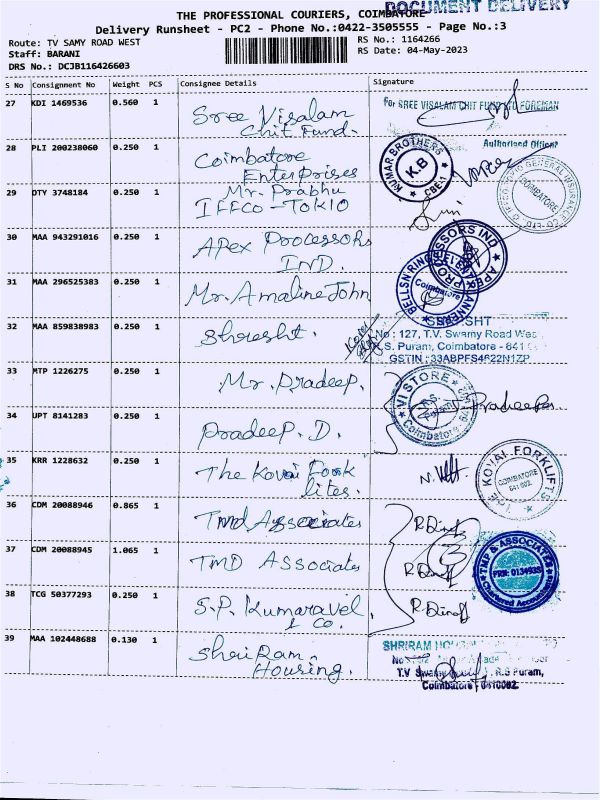 DOCUMENT DELIVERY
THE PROFESSIONAL COURIERS, COIMBATORE
Delivery Runsheet - PC2 - Phone No.:0422-3505555 - Page No.:3
Route: TV SAMY ROAD WEST
RS No.: 1164266
Staff: BARANI
RS Date: 04-May-2023
DRS No.: DCJB116426603
S No Consignment No Weight PCS Consignee Details Signature
27 KDI 1469536 0.560 1 Sree Visalam
Chit Fund.
For SREE VISALAM CHIT FUND LTD FOREMAN
Authorised Officer
28 PLI 200238060 0.250 1 Coimbatore
Enterprises
KUMAR BROTHERS
K.B
CBE-1
29 DTY 3748184 0.250 1 Mr. Prabhu
IFFCO-TOKIO
COIMBATORE
30 MAA 943291016 0.250 1 Apex Processors
IND.
APEX PROCESSORS IND
31 MAA 296525383 0.250 1 Mr. Amaline John
Coimbatore
32 MAA 859838983 0.250 1 Shresht.
No : 127, T.V. Swamy Road West
R.S. Puram, Coimbatore - 641
GSTIN : 33ABPFS4622N1ZP
33 MTP 1226275 0.250 1 Mr. Pradeep.
VI STORE
Coimbatore
Pradeep
34 UPT 8141283 0.250 1 Pradeep. D.
35 KRR 1228632 0.250 1 The Kovai Fork
lites.
THE KOVAI FORKLIFTS
COIMBATORE
641 002.
36 CDM 20088946 0.865 1 TMD Associates
37 CDM 20088945 1.065 1 TMD Associates
TMP & ASSOCIATES
FRN: 013493S
Chartered Accountants
38 TCG 50377293 0.250 1 S.P. Kumaravel
& Co.
39 MAA 102448688 0.130 1 ShriRam
Housing.
SHRIRAM
T.V Swamy Road, R.S Puram,
Coimbatore